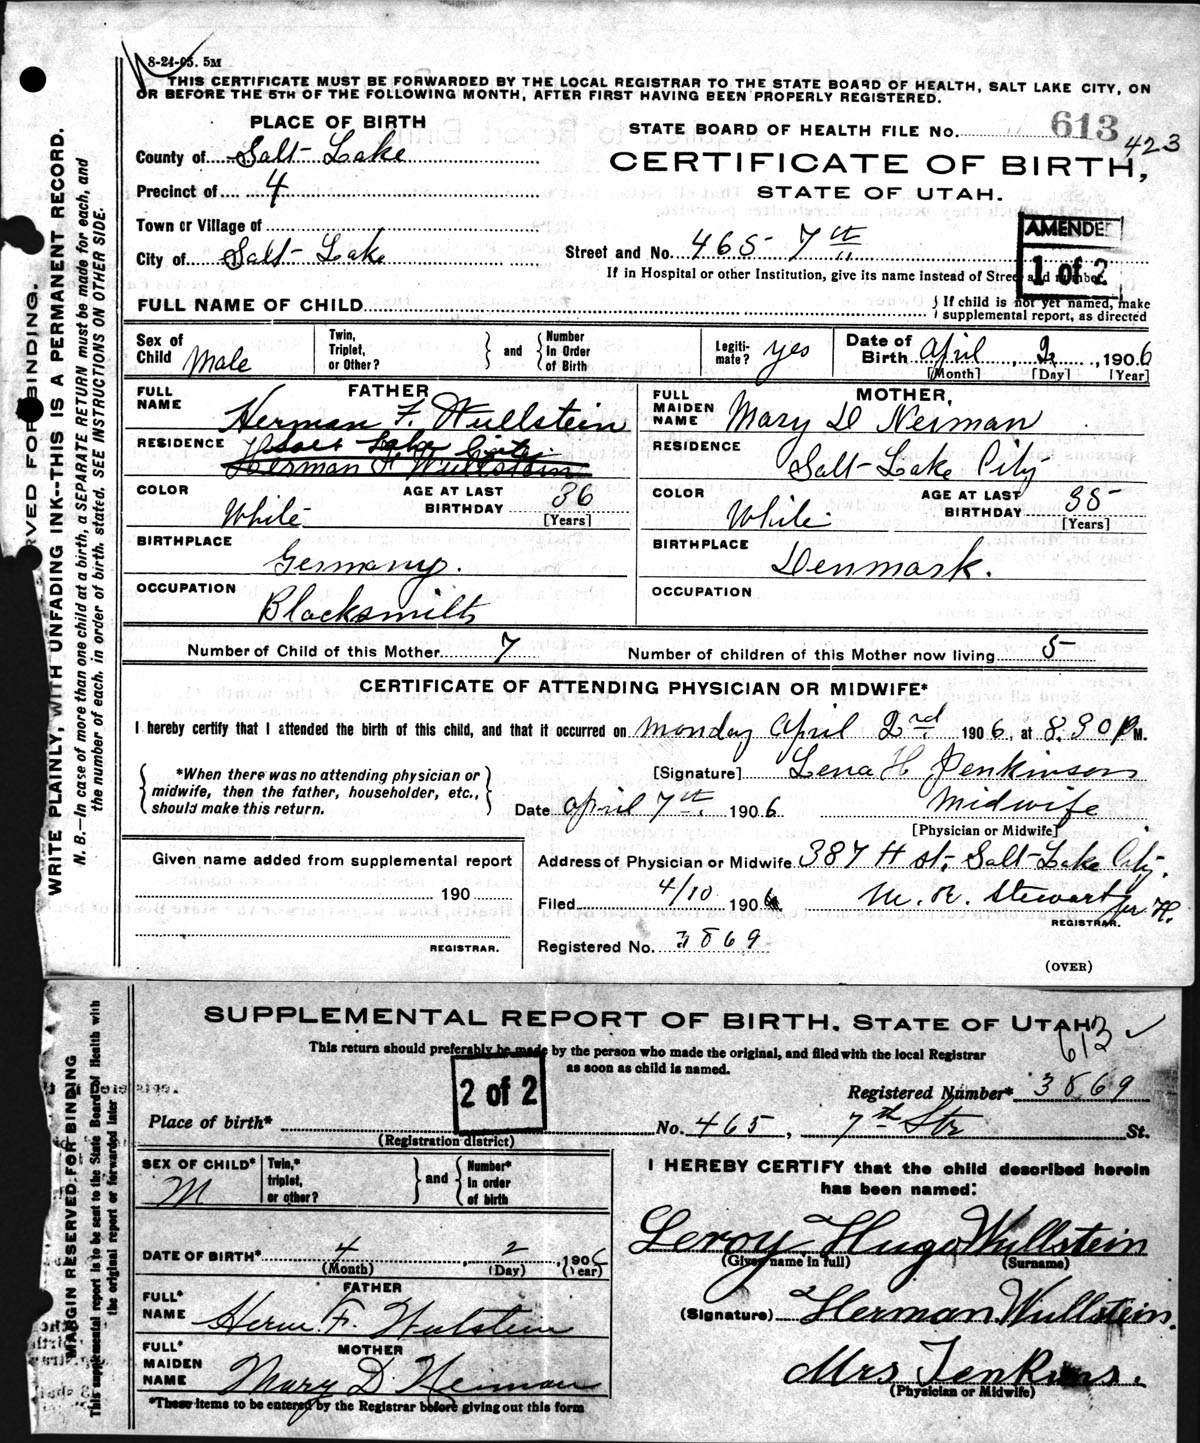 8-24-05. 5M
THIS CERTIFICATE MUST BE FORWARDED BY THE LOCAL REGISTRAR TO THE STATE BOARD OF HEALTH, SALT LAKE CITY, ON
OR BEFORE THE 5TH OF THE FOLLOWING MONTH, AFTER FIRST HAVING BEEN PROPERLY REGISTERED.
PLACE OF BIRTH
County of Salt Lake
Precinct of 4
Town or Village of
City of Salt Lake
STATE BOARD OF HEALTH FILE No. 613
423
CERTIFICATE OF BIRTH,
STATE OF UTAH.
AMENDED
1 of 2
Street and No. 465 7th
If in Hospital or other Institution, give its name instead of Street and number.
FULL NAME OF CHILD
If child is not yet named, make
supplemental report, as directed
Sex of Child Male
Twin, Triplet, or Other?
and
Number In Order of Birth
Legiti-mate? yes
Date of Birth April 2, 1906
[Month] [Day] [Year]
FATHER
FULL NAME Herman F. Wullstein
RESIDENCE Salt Lake City
Herman F Wullstein
COLOR White
AGE AT LAST BIRTHDAY 36
[Years]
BIRTHPLACE Germany.
OCCUPATION Blacksmith
MOTHER,
FULL MAIDEN NAME Mary D Neiman
RESIDENCE Salt Lake City
COLOR White
AGE AT LAST BIRTHDAY 35
[Years]
BIRTHPLACE Denmark.
OCCUPATION
Number of Child of this Mother 7
Number of children of this Mother now living 5
CERTIFICATE OF ATTENDING PHYSICIAN OR MIDWIFE*
I hereby certify that I attended the birth of this child, and that it occurred on Monday April 2nd 1906, at 8.30 P M.
*When there was no attending physician or
midwife, then the father, householder, etc.,
should make this return.
[Signature] Lena H Jenkinson
Date April 7th. 1906 Midwife
[Physician or Midwife]
Given name added from supplemental report
190
REGISTRAR.
Address of Physician or Midwife 387 H st, Salt Lake City.
Filed 4/10 1906 M. R. Stewart
REGISTRAR.
Registered No. 3869
(OVER)
RVED FOR BINDING.
WRITE PLAINLY, WITH UNFADING INK--THIS IS A PERMANENT RECORD.
N. B.—In case of more than one child at a birth, a SEPARATE RETURN must be made for each, and
the number of each, in order of birth, stated. SEE INSTRUCTIONS ON OTHER SIDE.
SUPPLEMENTAL REPORT OF BIRTH, STATE OF UTAH
613
This return should preferably be made by the person who made the original, and filed with the local Registrar
as soon as child is named.
2 of 2
Registered Number* 3869
Place of birth* No. 465, 7th Str St.
(Registration district)
SEX OF CHILD* M
Twin,* triplet, or other?
and
Number* In order of birth
I HEREBY CERTIFY that the child described herein
has been named:
Leroy Hugo Wullstein
(Given name in full) (Surname)
DATE OF BIRTH* 4 2, 1906
(Month) (Day) (Year)
FATHER
FULL* NAME Herm F. Wulstein
(Signature) Herman Wullstein.
MOTHER
FULL* MAIDEN NAME Mary D. Neiman
Mrs Jenkins.
(Physician or Midwife)
*These items to be entered by the Registrar before giving out this form
MARGIN RESERVED FOR BINDING
This supplemental report is to be sent to the State Board of Health with
the original report or forwarded later